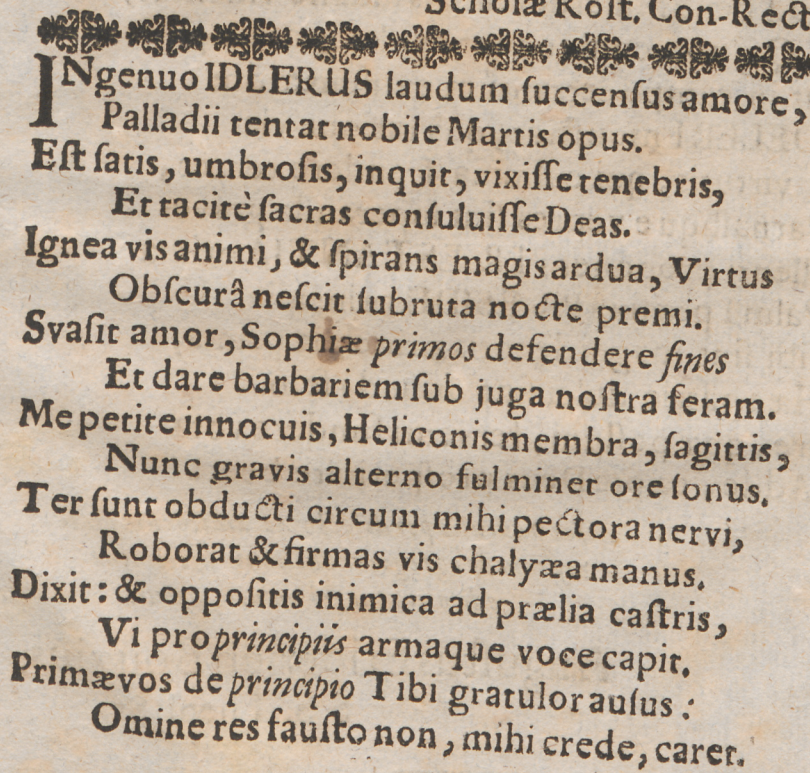 Scholæ Roſt. Con-Rect
INgenuo IDLERUS laudum ſuccenſus amore,
Palladii tentat nobile Martis opus.
Eſt ſatis, umbroſis, inquit, vixiſſe tenebris,
Et tacitè ſacras conſuluiſſe Deas.
Ignea vis animi, & ſpirans magis ardua, Virtus
Obſcurâ neſcit ſubruta nocte premi.
Svaſit amor, Sophiæ primos defendere fines
Et dare barbariem ſub juga noſtra feram.
Me petite innocuis, Heliconis membra, ſagittis,
Nunc gravis alterno fulminet ore ſonus.
Ter ſunt obducti circum mihi pectora nervi,
Roborat & firmas vis chalyæa manus.
Dixit: & oppoſitis inimica ad prælia caſtris,
Vi pro principiis armaque voce capit.
Primævos de principio Tibi gratulor auſus:
Omine res fauſto non, mihi crede, caret.